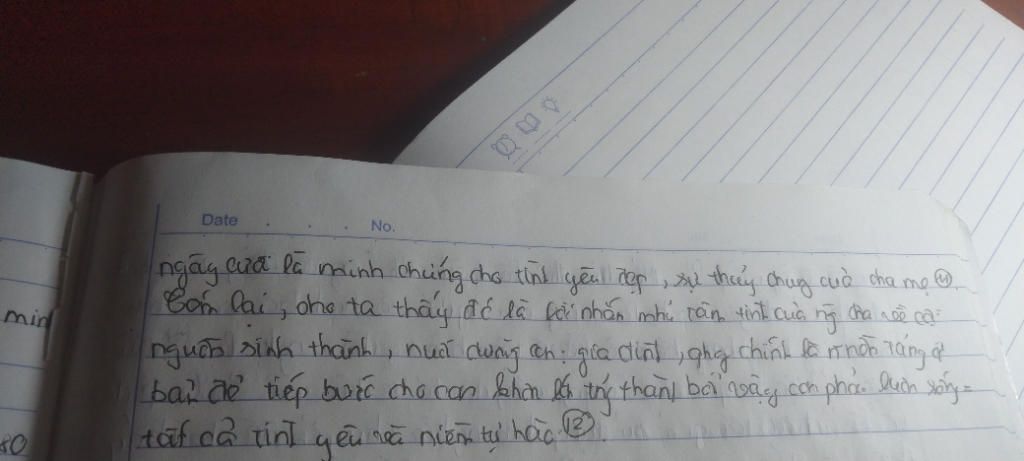 Date . . . . No.
ngày cưới là minh chứng cho tình yêu đẹp, sự thuỷ chung của cha mẹ (11).
lại, cho ta thấy đó là lời nhắn nhủ tâm tình của ng cha về cội
nguồn sinh thành, nuôi dưỡng con: gia đình, qhg chính là
để tiếp bước cho con khôn lớn trưởng thành bởi vậy con phải luôn sống =
tất cả tình yêu và niềm tự hào (12).
min
80